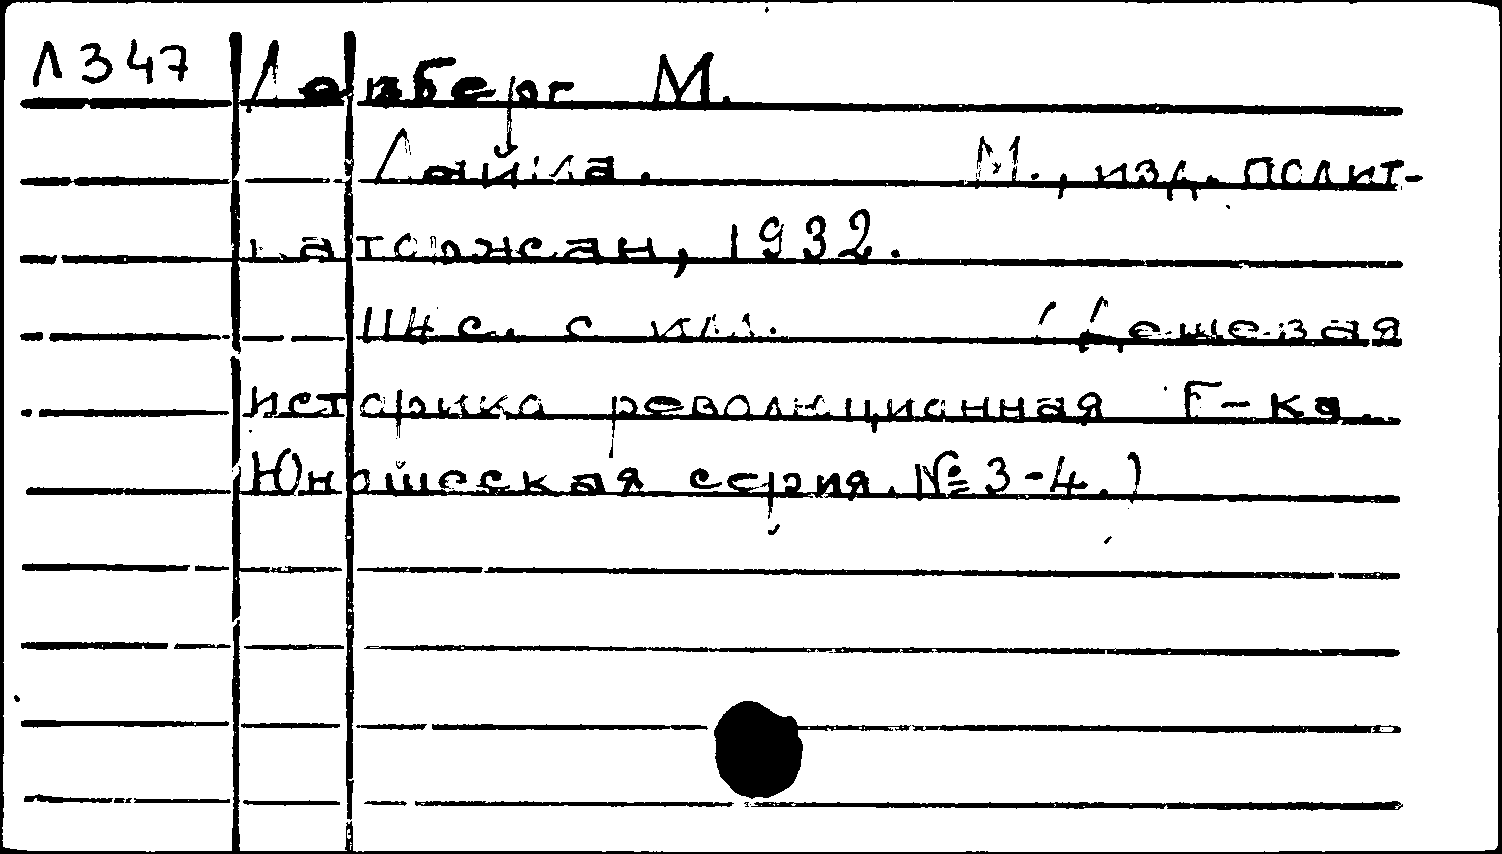 Л347 М.
М., изд. полит-
каторжан, 1932.
114 с. с илл. (Дешевая
историко революционная Б-ка.
Юношеская серия. № 3-4.)